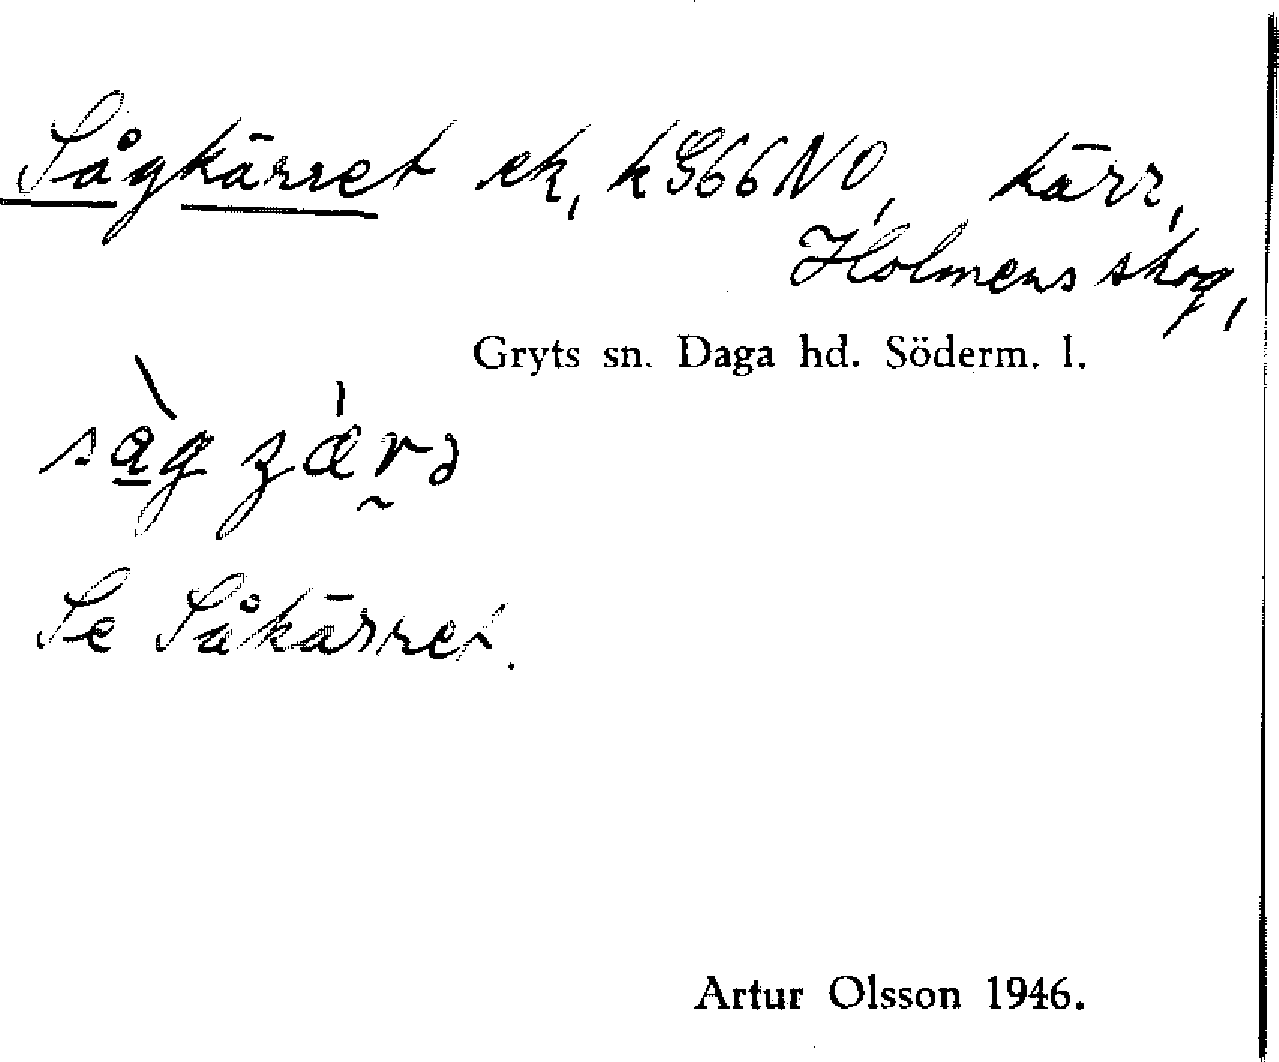 Sågkärret ek, k G66NO, kärr,
Holmens skog,
Gryts sn. Daga hd. Söderm. l.
Se Såkärret.
Artur Olsson 1946.